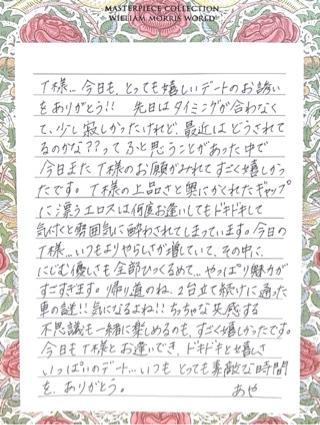 MASTERPIECE COLLECTION
WILLIAM MORRIS WORLD
T様… 今日も、とっても嬉しいデートのお誘い
をありがとう!! 先日はタイミングが合わなく
て、少し寂しかったけれど、最近はどうされて
るのかな??って ふと思うことがあった中で
今日また T様のお顔がみれて すごく嬉しかっ
たです。T様の上品さと奥にかくれたギャップ
に漂うエロスは何度お逢いしてもドキドキして
気付くと雰囲気に酔わされてしまっています。今日の
T様… いつもよりやらしさが増していて、その中に
にじむ優しさも全部ひっくるめて… やっぱり魅力が
すごすぎます。帰り道のね、2台立て続けに通った
車の謎!! 気になるよね!! ちっちゃな共感する
不思議も一緒に楽しめるのも、すごく嬉しかったです。
今日も T様とお逢いでき、ドキドキと嬉しさ
いっぱいのデート… いつも とっても素敵な時間
を、ありがとう。 あや